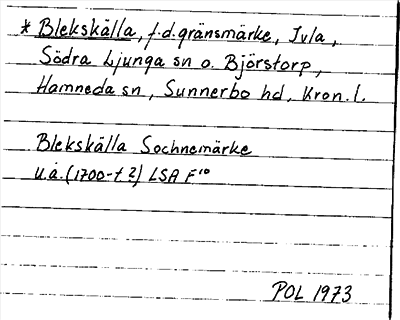 * Blekskälla, f.d. gränsmärke, Jvla,
Södra Ljunga sn o. Björstorp,
Hamneda sn, Sunnerbo hd, Kron. l.
Blekskälla Sochnemärke
u.å. (1700-t?) LSA F¹⁰
POL 1973